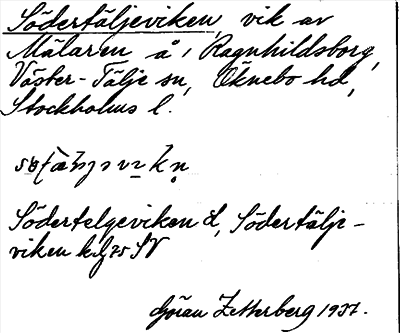 Södertäljeviken, vik av
Mälaren å, Ragnhildsborg,
Väster-Tälje sn, Öknebo hd,
Stockholms l.
Södertelgeviken d, Södertälje-
viken k. Bl 75 SV
Göran Zetterberg 1937.